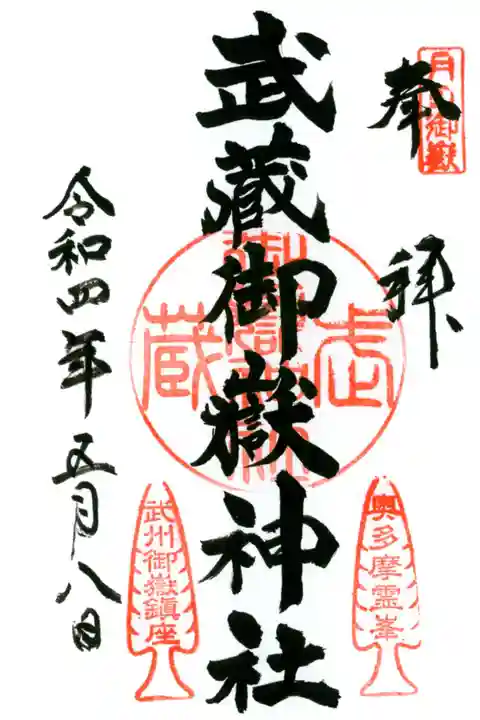 奉拝
武蔵御嶽神社
令和四年五月八日
武蔵
御嶽神社
奥多摩霊峯
武州御嶽鎮座